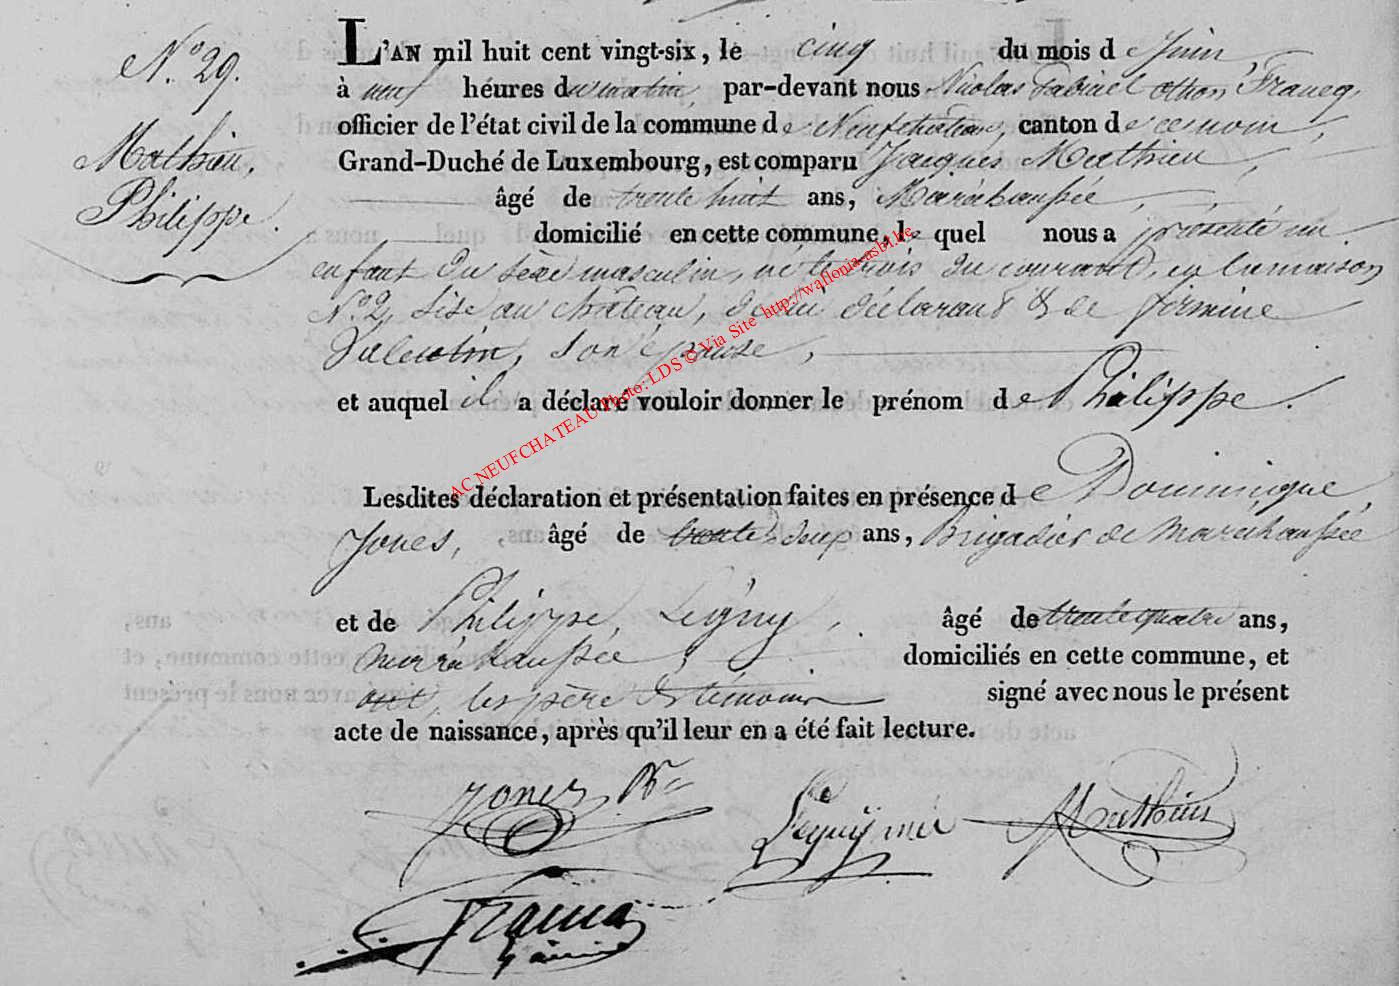 N.° 29.
Mathieu,
Philippe.
L'AN mil huit cent vingt-six, le cinq du mois de Juin,
à neuf héures du matin, par-devant nous Nicolas Gabriel othon Francq,
officier de l'état civil de la commune de Neufchateau, canton de ce nom,
Grand-Duché de Luxembourg, est comparu Jacques Mathieu,
âgé de trente huit ans, Maréchaussée,
domicilié en cette commune, le quel nous a présenté un
enfant du sexe masculin, né le trois du courant, en la maison
N.° 2, sise au château, de lui déclarant & de firmine
Valentin, son épouse,
et auquel il a déclaré vouloir donner le prénom de Philippe.
Lesdites déclaration et présentation faites en présence de Dominique
Jones, âgé de trente-deux ans, Brigadier de Maréchaussée
et de Philippe Léguy, âgé de trente quatre ans,
maréchaussée, domiciliés en cette commune, et
ont, les père & témoins signé avec nous le présent
acte de naissance, après qu'il leur en a été fait lecture.
Jones Br
Leguy mé
Mathieu
Francq
AC NEUFCHATEAU Photo: LDS © Via Site http://wallonia-asbl.be